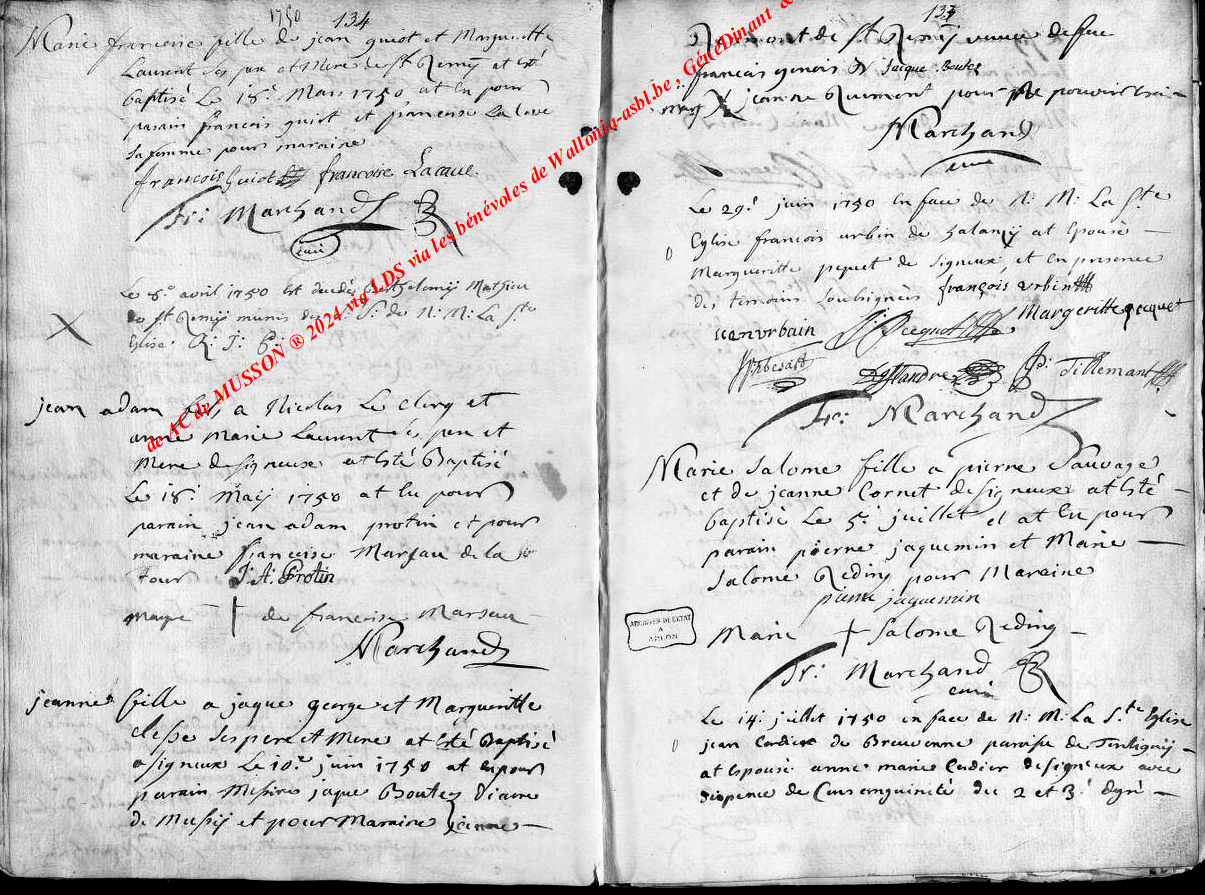 1750 134
Marie francoise fille de jean guiot et Margueritte
Laurent ses pere et Mere de St Remÿ at esté
baptisé Le 18e Mars 1750 at eu pour
parain francois guiot et francoise La cave
sa femme pour maraine
francois Guiot francoise Lacave.
fr: Marchand
curé
Le 8e avril 1750 Est decedé Barthelemij Mathieu
de St Remij munis des S: S: de N: M: La Ste
Eglise R: J: P:
jean adam fils a Nicolas Le Clerq et
anne Marie Laurent ses pere et
Mere de signeux at Esté Baptisé
Le 18e Maij 1750 at Eu pour
parain jean adam protin et pour
maraine francoise Marsau de la
tour J. A. Protin
marque † de francoise Marsau
Marchand
jeanne fille a jaque george et Margueritte
clesse ses pere et Mere at Esté Baptisé
a signeux Le 10e juin 1750 at eu pour
parain Messire jaque Boutez Viaire
de Mussÿ et pour Maraine jeanne
135
Rumont de St Remÿ veuve de feue
francois genois Jacque Boutez
marq X jeanne Rumont pour ne pouvoir
Marchand
curé
Le 29e juin 1750 En face de N: M: La Ste
Eglise francois urbin de halanzij at Epousé
Margueritte pequet de signeux et en presence
des temoins soubsignés françois urbin
Margeritte pecquet
iean vrbain J: Pecquet
Tillemant
fr: Marchand
Marie Salome fille a pierre Sauvage
et de jeanne Cornet de signeux at Esté
baptisé Le 5e juillet et at Eu pour
parain pierre jaquemin et Marie
Salome Reding pour Maraine
pierre jaquemin
ARCHIVES DE L'ETAT
A
ARLON
Marie † Salome Reding
fr: Marchand
curé
Le 14e juillet 1750 en face de N: M: La Ste Eglise
jean Cordier de Breuvenne paroisse de Tintignij
at Epousé anne marie Cudier de signeux avec
dispence de Consenguinité du 2 et 3e degré
de AC de MUSSON ® 2024 via LDS via les bénévoles de Wallonia-asbl.be, GénéDinant &